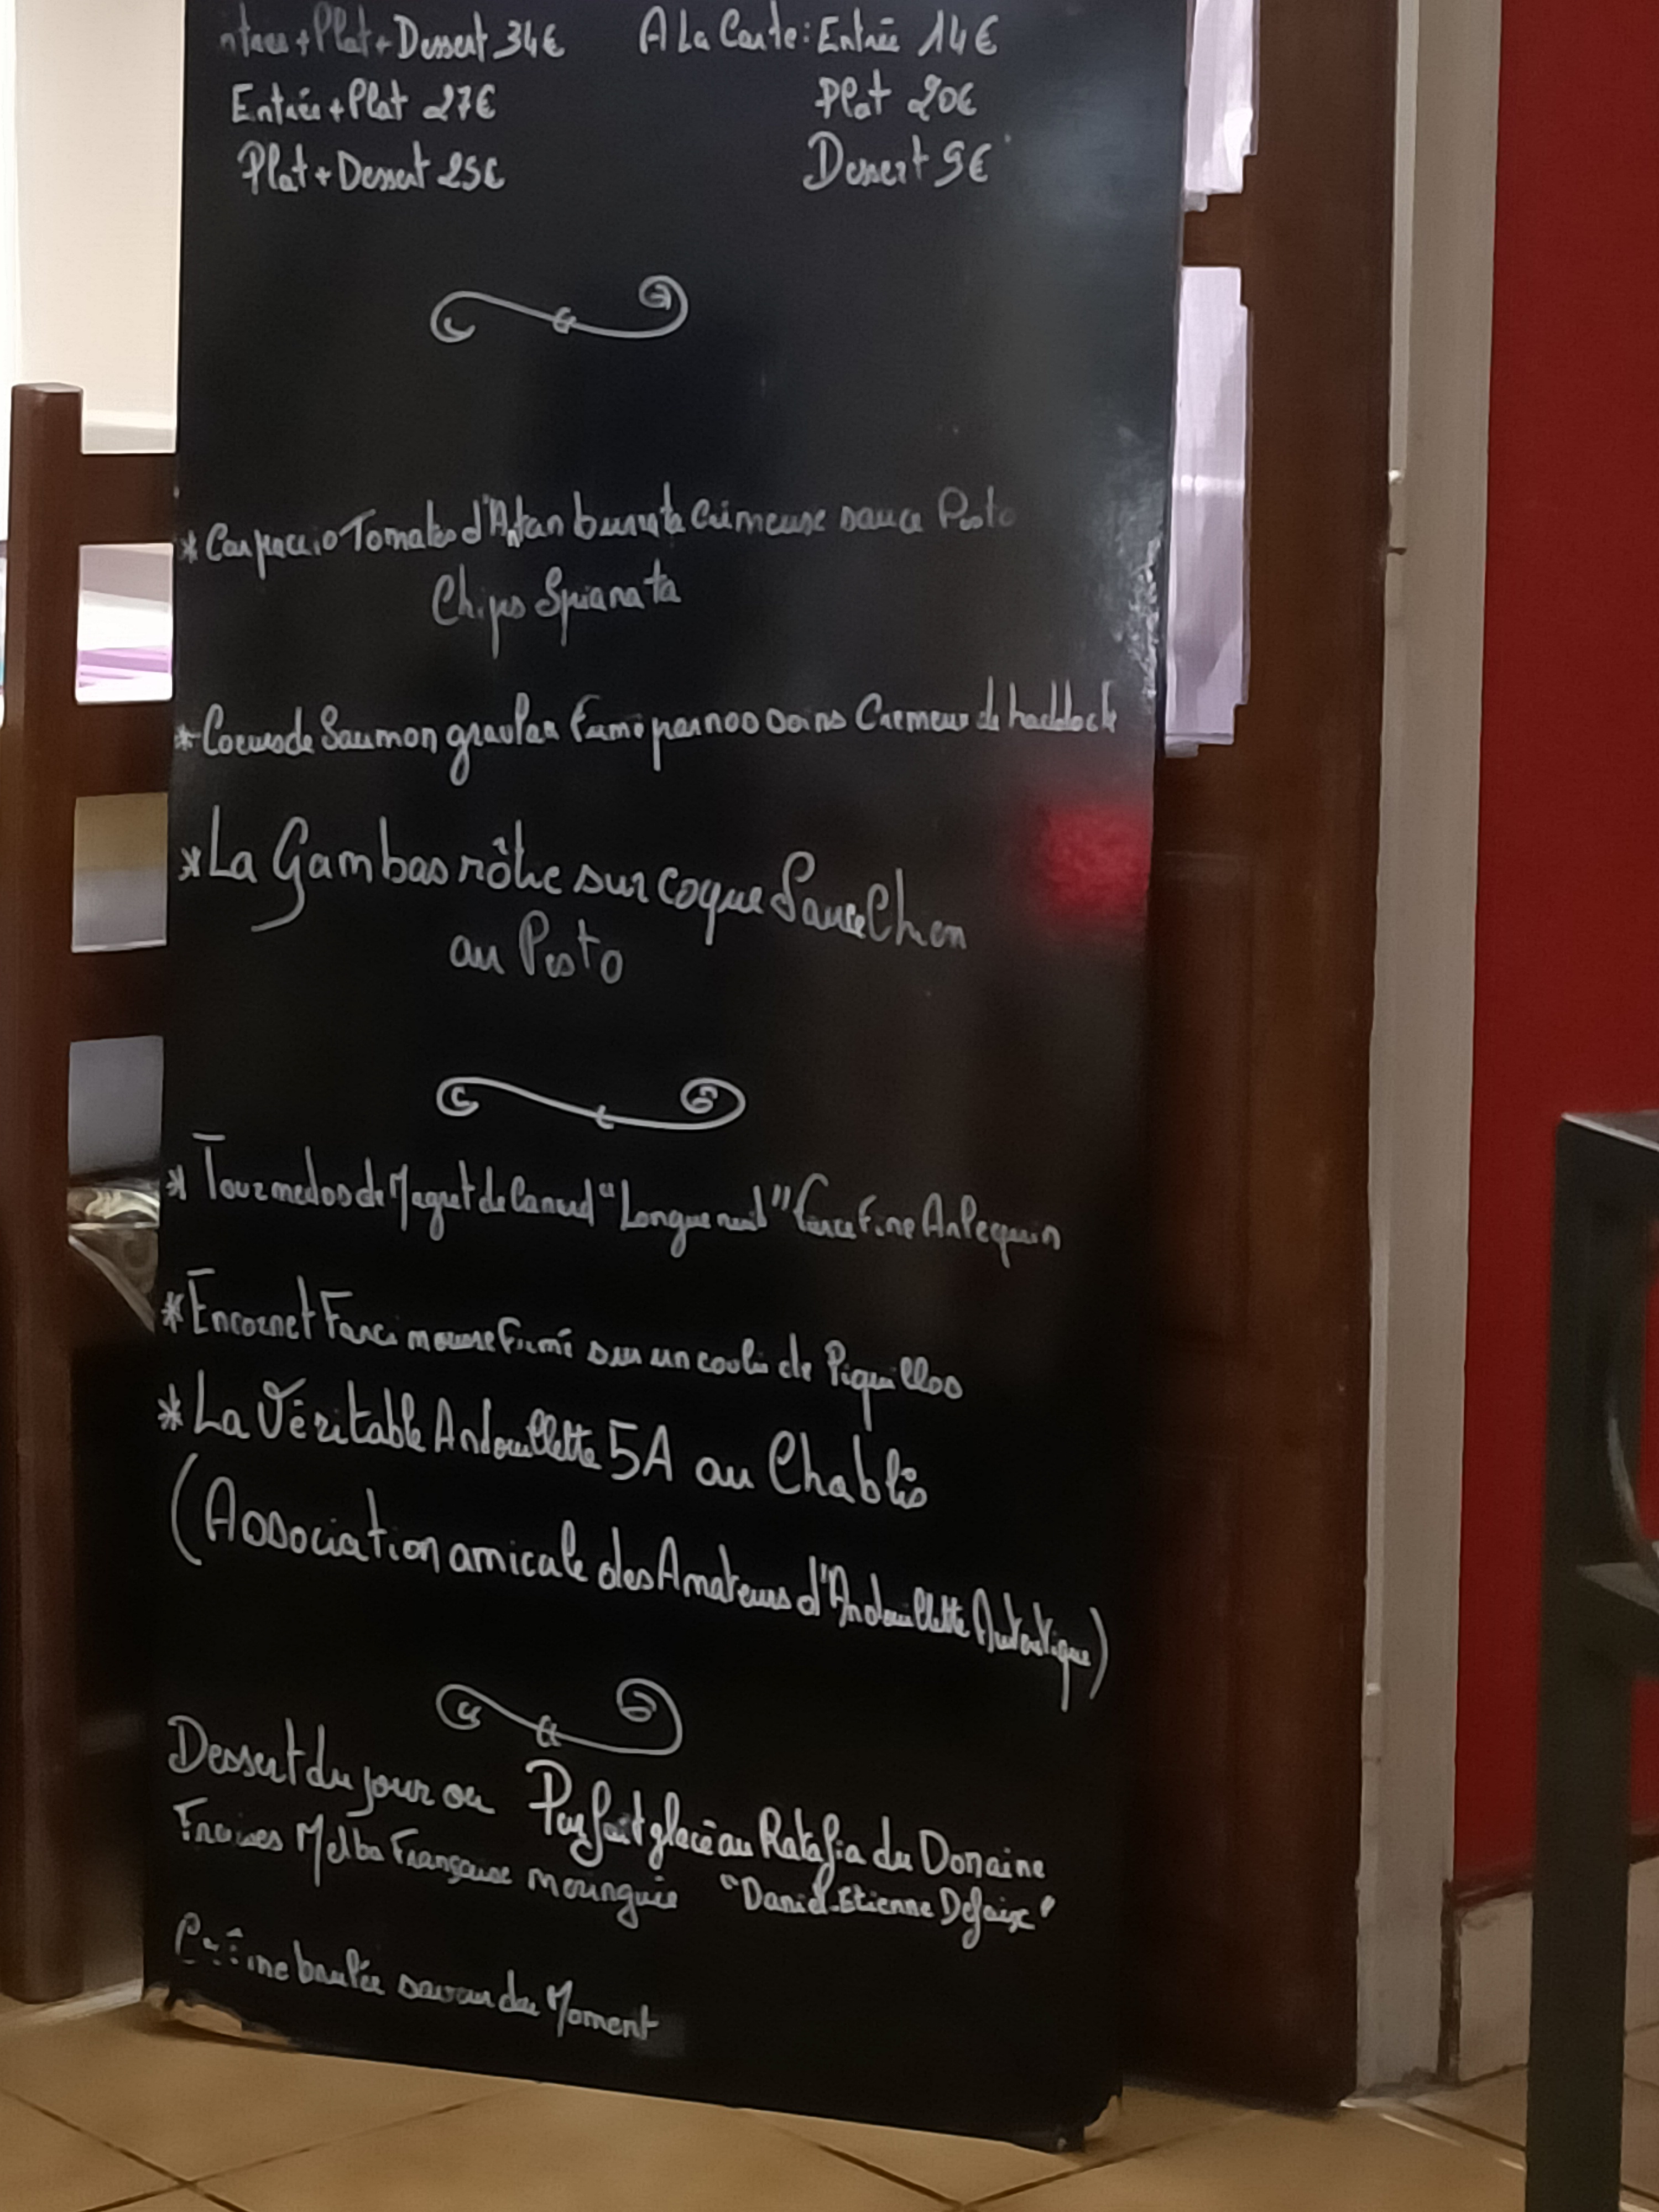 Entrée + Plat + Dessert 34€
A La Carte : Entrée 14€
Entrée + Plat 27€
Plat 20€
Plat + Dessert 25€
Dessert 9€
* Carpaccio Tomates d'Antan burrata Crémeuse sauce Pesto
Chips Spianata
* Coeurs de Saumon gravlax Fumé par nos soins Crémeux de haddock
* La Gambas rôtie sur coque Sauce Chien
au Pesto
* Tournedos de Magret de Canard "Longue nuit" farce Fine Arlequin
* Encornet Farci mousse Fumé sur un coulis de Piquillos
* La Véritable Andouillette 5A au Chablis
(Association amicale des Amateurs d'Andouillette Autentique)
Dessert du jour ou Parfait glacé au Ratafia du Domaine
Fraises Melba Française meringuée "Daniel-Etienne Defaix"
Crème brulée saveur du Moment